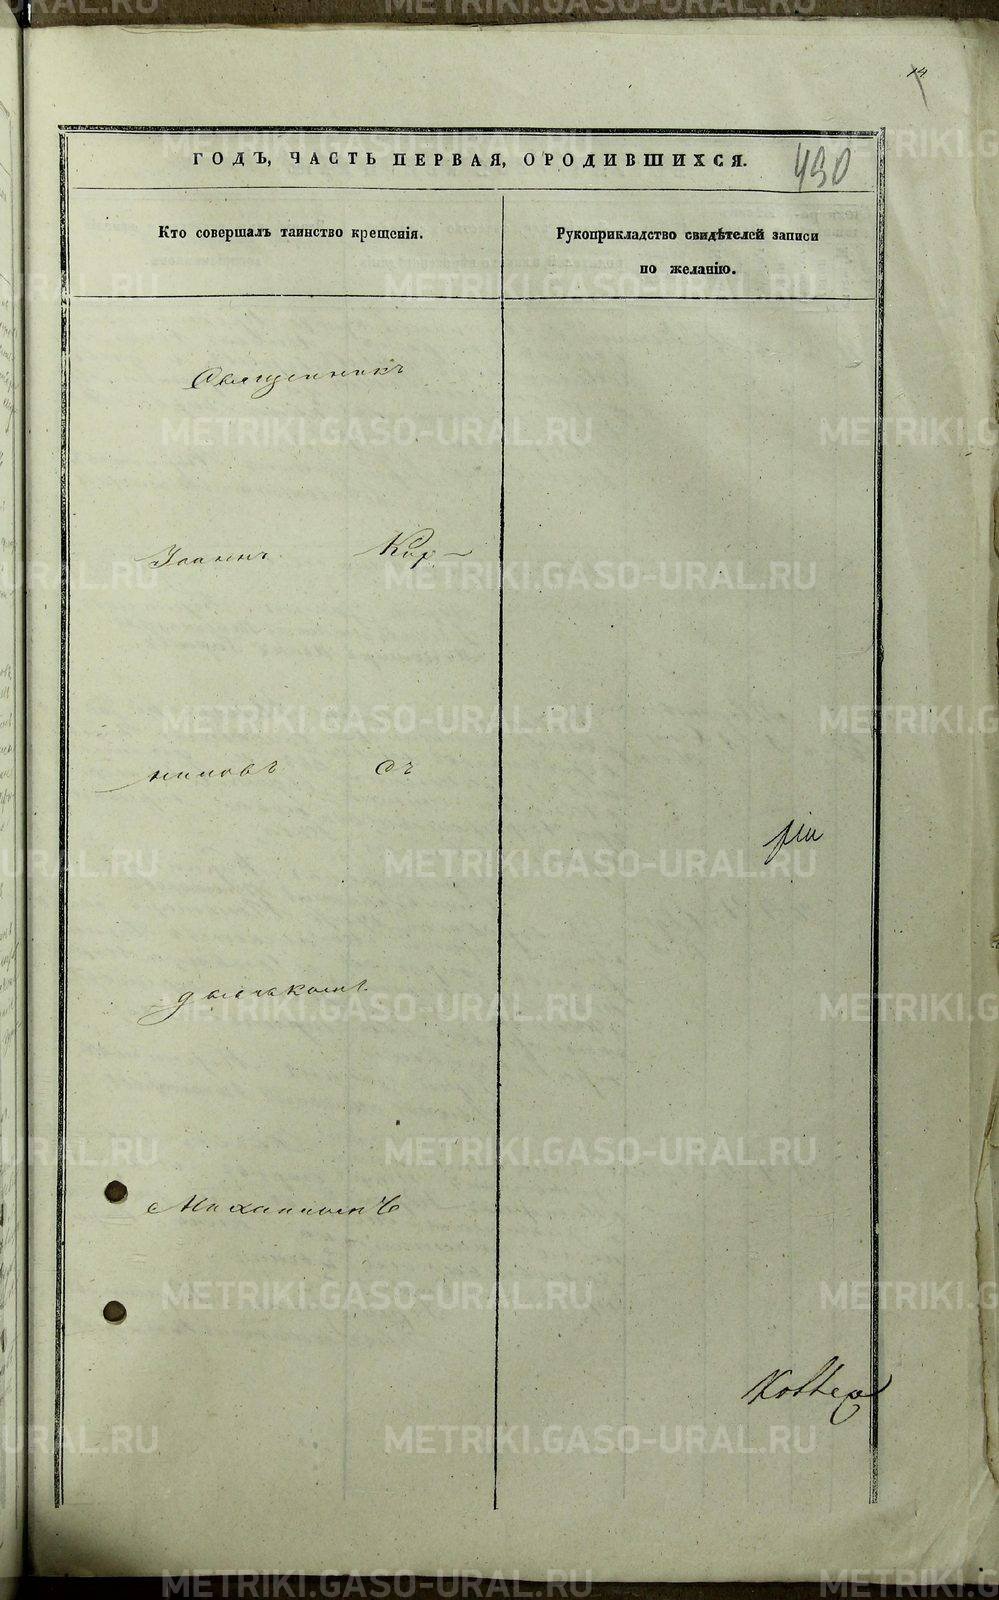 14
ГОДЪ, ЧАСТЬ ПЕРВАЯ, О РОДИВШИХСЯ.
490
Кто совершалъ таинство крещенія.
Рукоприкладство свидѣтелей записи
по желанію.
Священникъ
Іоаннъ Кир-
пиловъ съ
дьячкомъ
METRIKI.GASO-URAL.RU